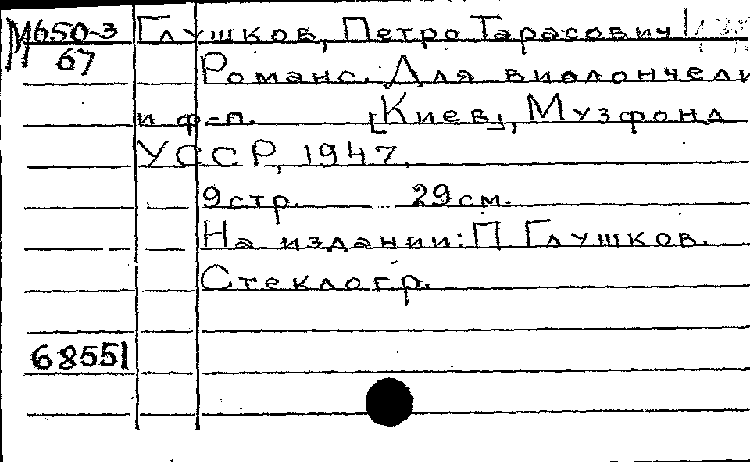 М650-3 Глушков, Петро Тарасович
67 Романс. Для виолончели
и ф-п. [Киев], Музфонд
УССР, 1947.
9 стр. 29 см.
На издании: П Глушков.
Стеклогр.
68551